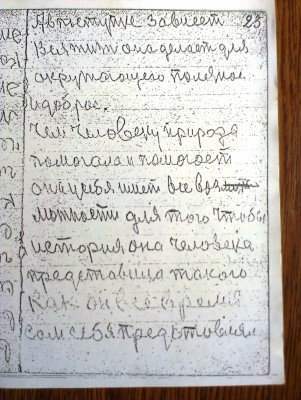 А в поступке зависет 23
Вся жизнь она делает для
окружающего полезное
и доброе.
Чем человеку природа
помогала и помогает
она у себя имеет все воз
можности для того чтобы
история она человека
представила такого
как он все время
сам себя представлял.